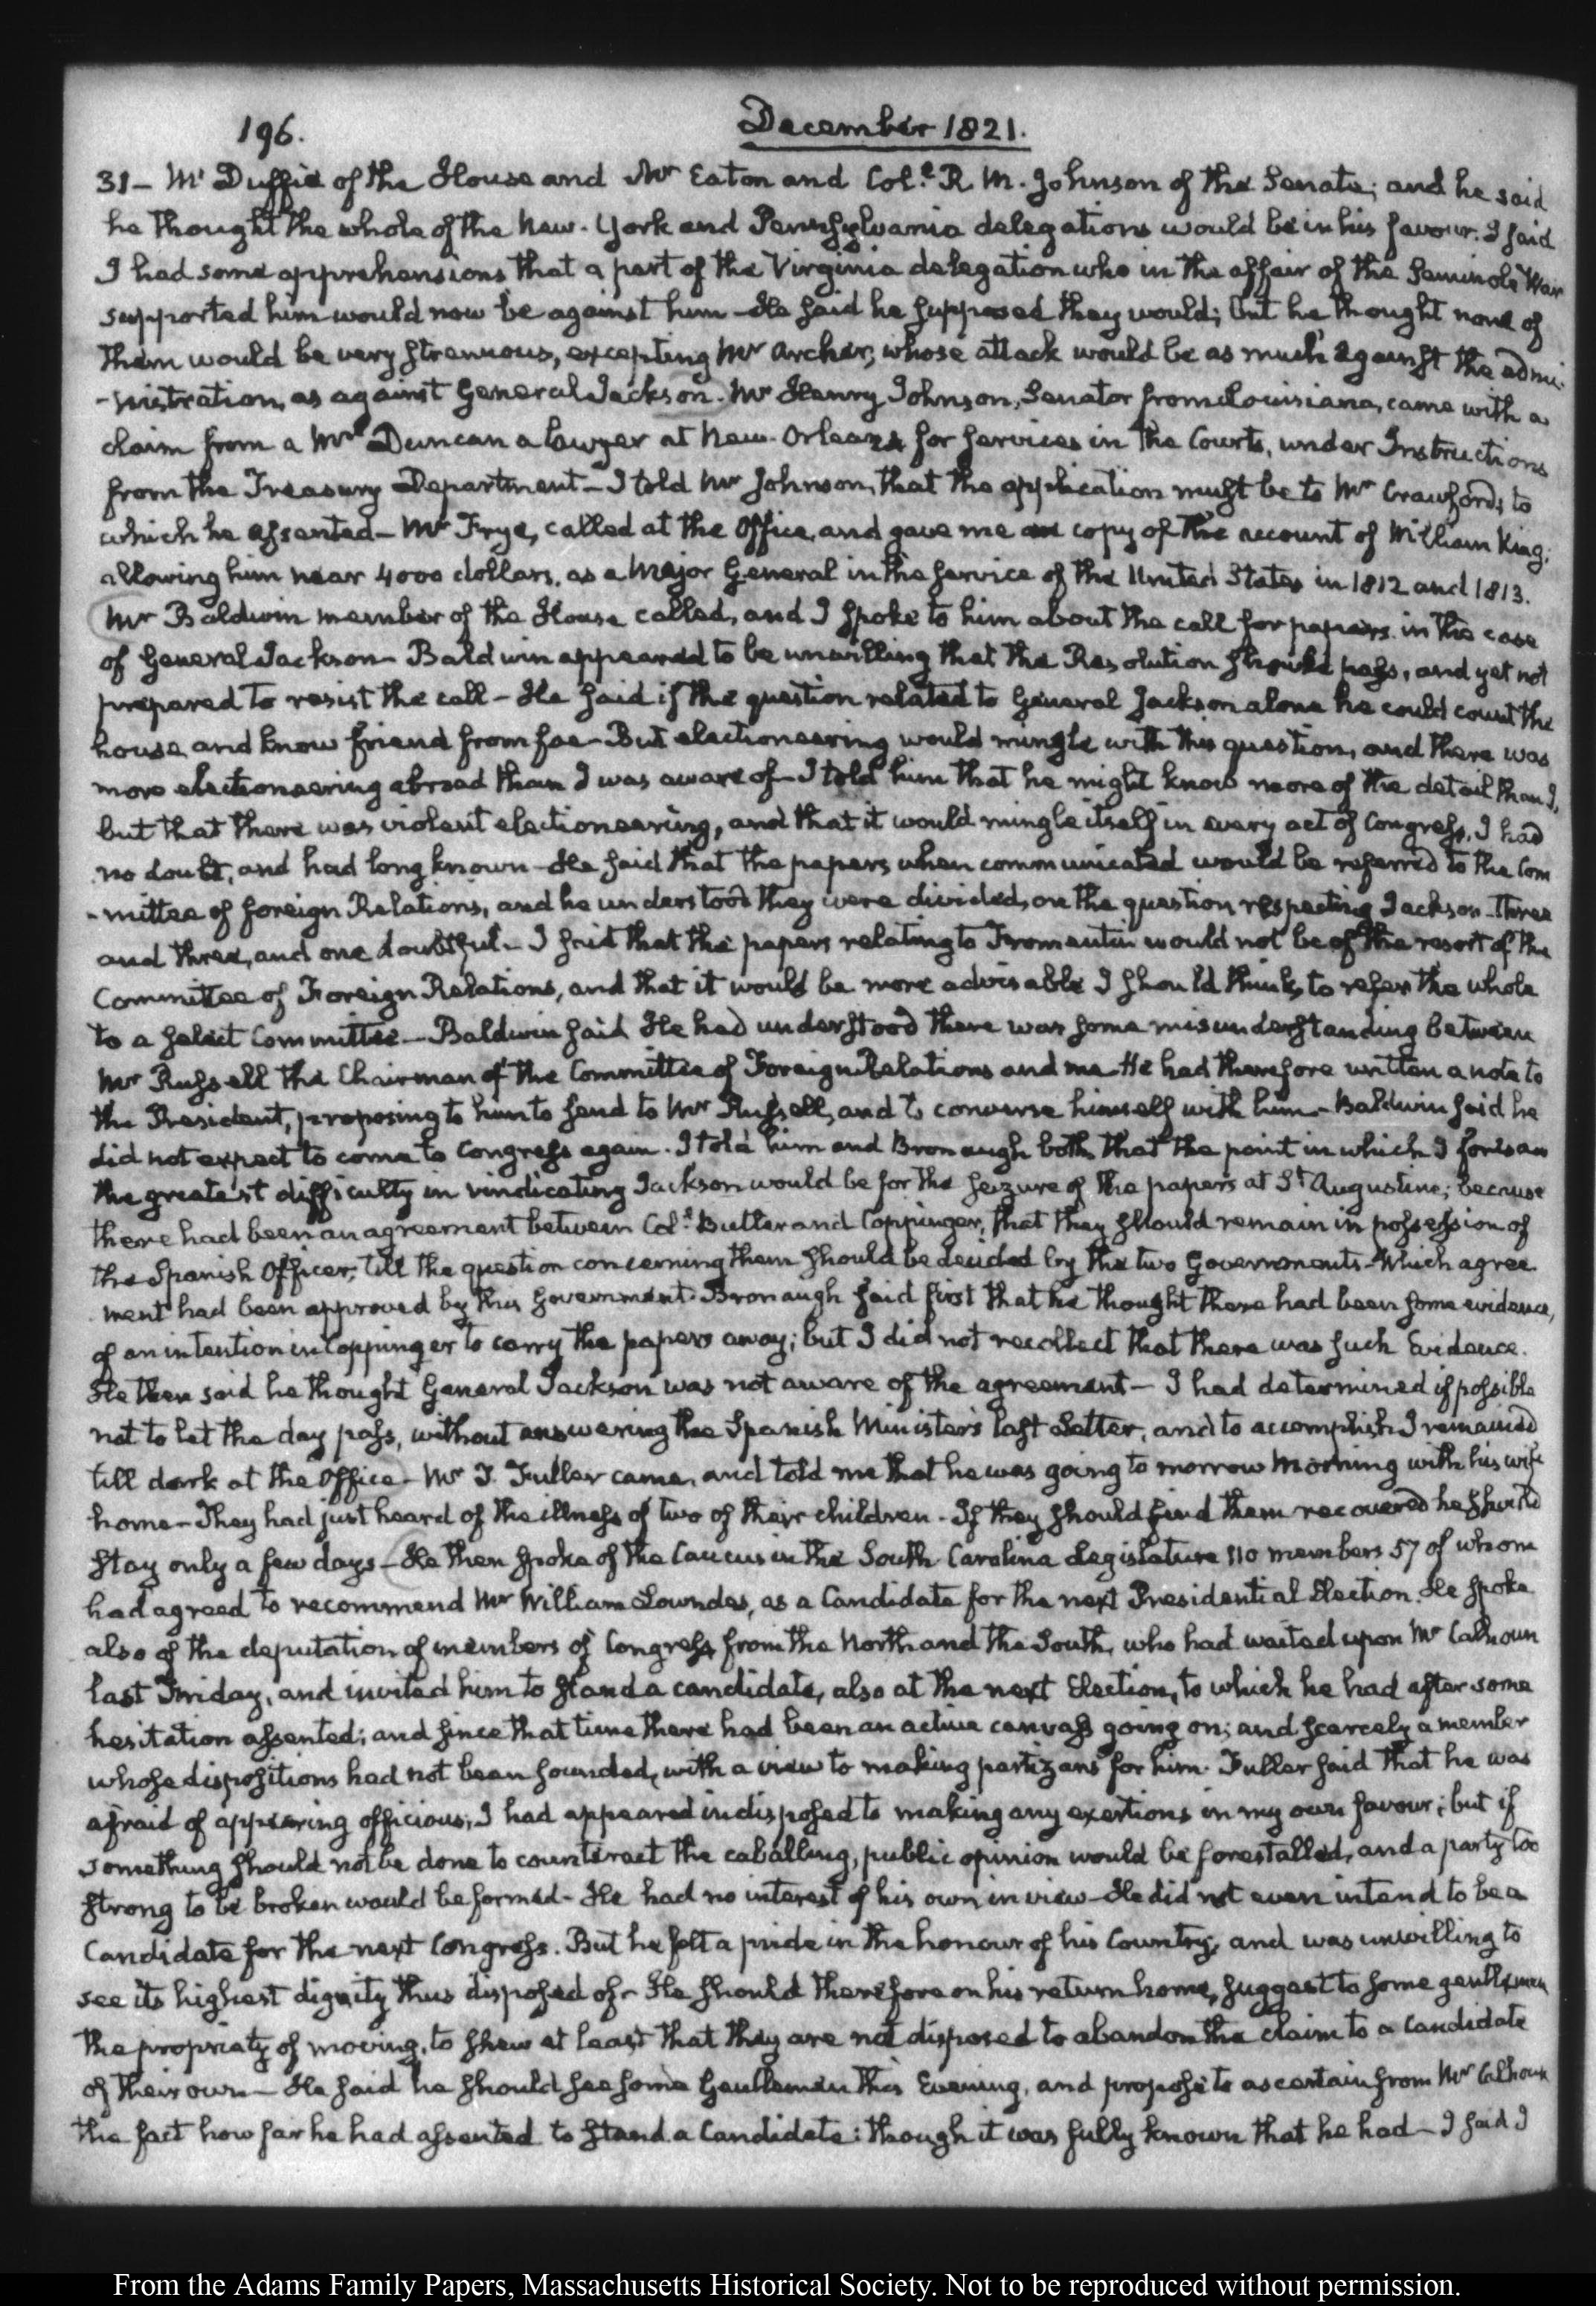 196.
December 1821.
31- Mc Duffie of the House and Mr Eaton and Col.l R. M. Johnson of the Senate; and he said
he thought the whole of the New-York and Pennsylvania delegations would be in his favour. I said
I had some apprehensions that a part of the Virginia delegation who in the affair of the Seminole War
supported him would now be against him – He said he supposed they would; but he thought none of
them would be very strenuous, excepting Mr Archer, whose attack would be as much against the admi-
-nistration, as against General Jackson. Mr Henry Johnson, Senator from Louisiana, came with a
claim from a Mr Duncan a lawyer at New-Orleans for services in the Courts, under Instructions
from the Treasury Department – I told Mr Johnson, that the application must be to Mr Crawford, to
which he assented – Mr Frye, called at the Office, and gave me a copy of the account of William King,
allowing him near 4000 dollars, as a Major General in the service of the United States in 1812 and 1813.
Mr Baldwin member of the House called, and I spoke to him about the call for papers in the case
of General Jackson – Baldwin appeared to be unwilling that the Resolution should pass, and yet not
prepared to resist the call – He said if the question related to General Jackson alone he could count the
house and know friend from foe – But electioneering would mingle with this question, and there was
more electioneering abroad than I was aware of – I told him that he might know more of the detail than I,
but that there was violent electioneering, and that it would mingle itself in every act of Congress, I had
no doubt, and had long known – He said that the papers when communicated would be referred to the Com
-mittee of foreign Relations, and he understood they were divided, on the question respecting Jackson – Three
and three, and one doubtful – I said that the papers relating to Fromentin would not be of the resort of the
Committee of Foreign Relations, and that it would be more advisable I should think, to refer the whole
to a select Committee – Baldwin said He had understood there was some misunderstanding between
Mr Russell the Chairman of the Committee of Foreign Relations and me – He had therefore written a note to
the President, proposing to him to send to Mr Russell, and to converse himself with him – Baldwin said he
did not expect to come to Congress again. I told him and Bronaugh both, that the point in which I foresaw
the greatest difficulty in vindicating Jackson would be for the seizure of the papers at St Augustine; because
there had been an agreement between Col.l Butler and Coppinger, that they should remain in possession of
the Spanish Officer, till the question concerning them should be decided by the two Governments – Which agree
ment had been approved by this Government. Bronaugh said first that he thought there had been some evidence,
of an intention in Coppinger to carry the papers away; but I did not recollect that there was such Evidence.
He then said he thought General Jackson was not aware of the agreement – I had determined if possible
not to let the day pass, without answering the Spanish Minister's last Letter, and to accomplish it remained
till dark at the Office – Mr T. Fuller came, and told me that he was going to morrow morning with his wife
home – They had just heard of the illness of two of their children – If they should find them recovered he should
stay only a few days – He then spoke of the Caucus in the South-Carolina Legislature 110 members 57 of whom
had agreed to recommend Mr William Lowndes, as a Candidate for the next Presidential Election. He spoke
also of the deputation of members of Congress from the North and the South, who had waited upon Mr Calhoun
last Friday, and invited him to stand a candidate, also at the next Election, to which he had after some
hesitation assented; and since that time there had been an active canvass going on; and scarcely a member
whose dispositions had not been sounded, with a view to making partizans for him. Fuller said that he was
afraid of appearing officious; I had appeared indisposed to making any exertions in my own favour; but if
something should not be done to counteract the caballing, public opinion would be forestalled, and a party too
strong to be broken would be formed – He had no interest of his own in view – He did not even intend to be a
Candidate for the next Congress. But he felt a pride in the honour of his Country, and was unwilling to
see its highest dignity thus disposed of – He should therefore on his return home, suggest to some gentlemen
the propriety of moving, to shew at least that they are not disposed to abandon the claim to a Candidate
of their own – He said he should see some Gentlemen this Evening, and propose to ascertain from Mr Calhoun
the fact how far he had assented to stand a Candidate: though it was fully known that he had – I said I
From the Adams Family Papers, Massachusetts Historical Society. Not to be reproduced without permission.